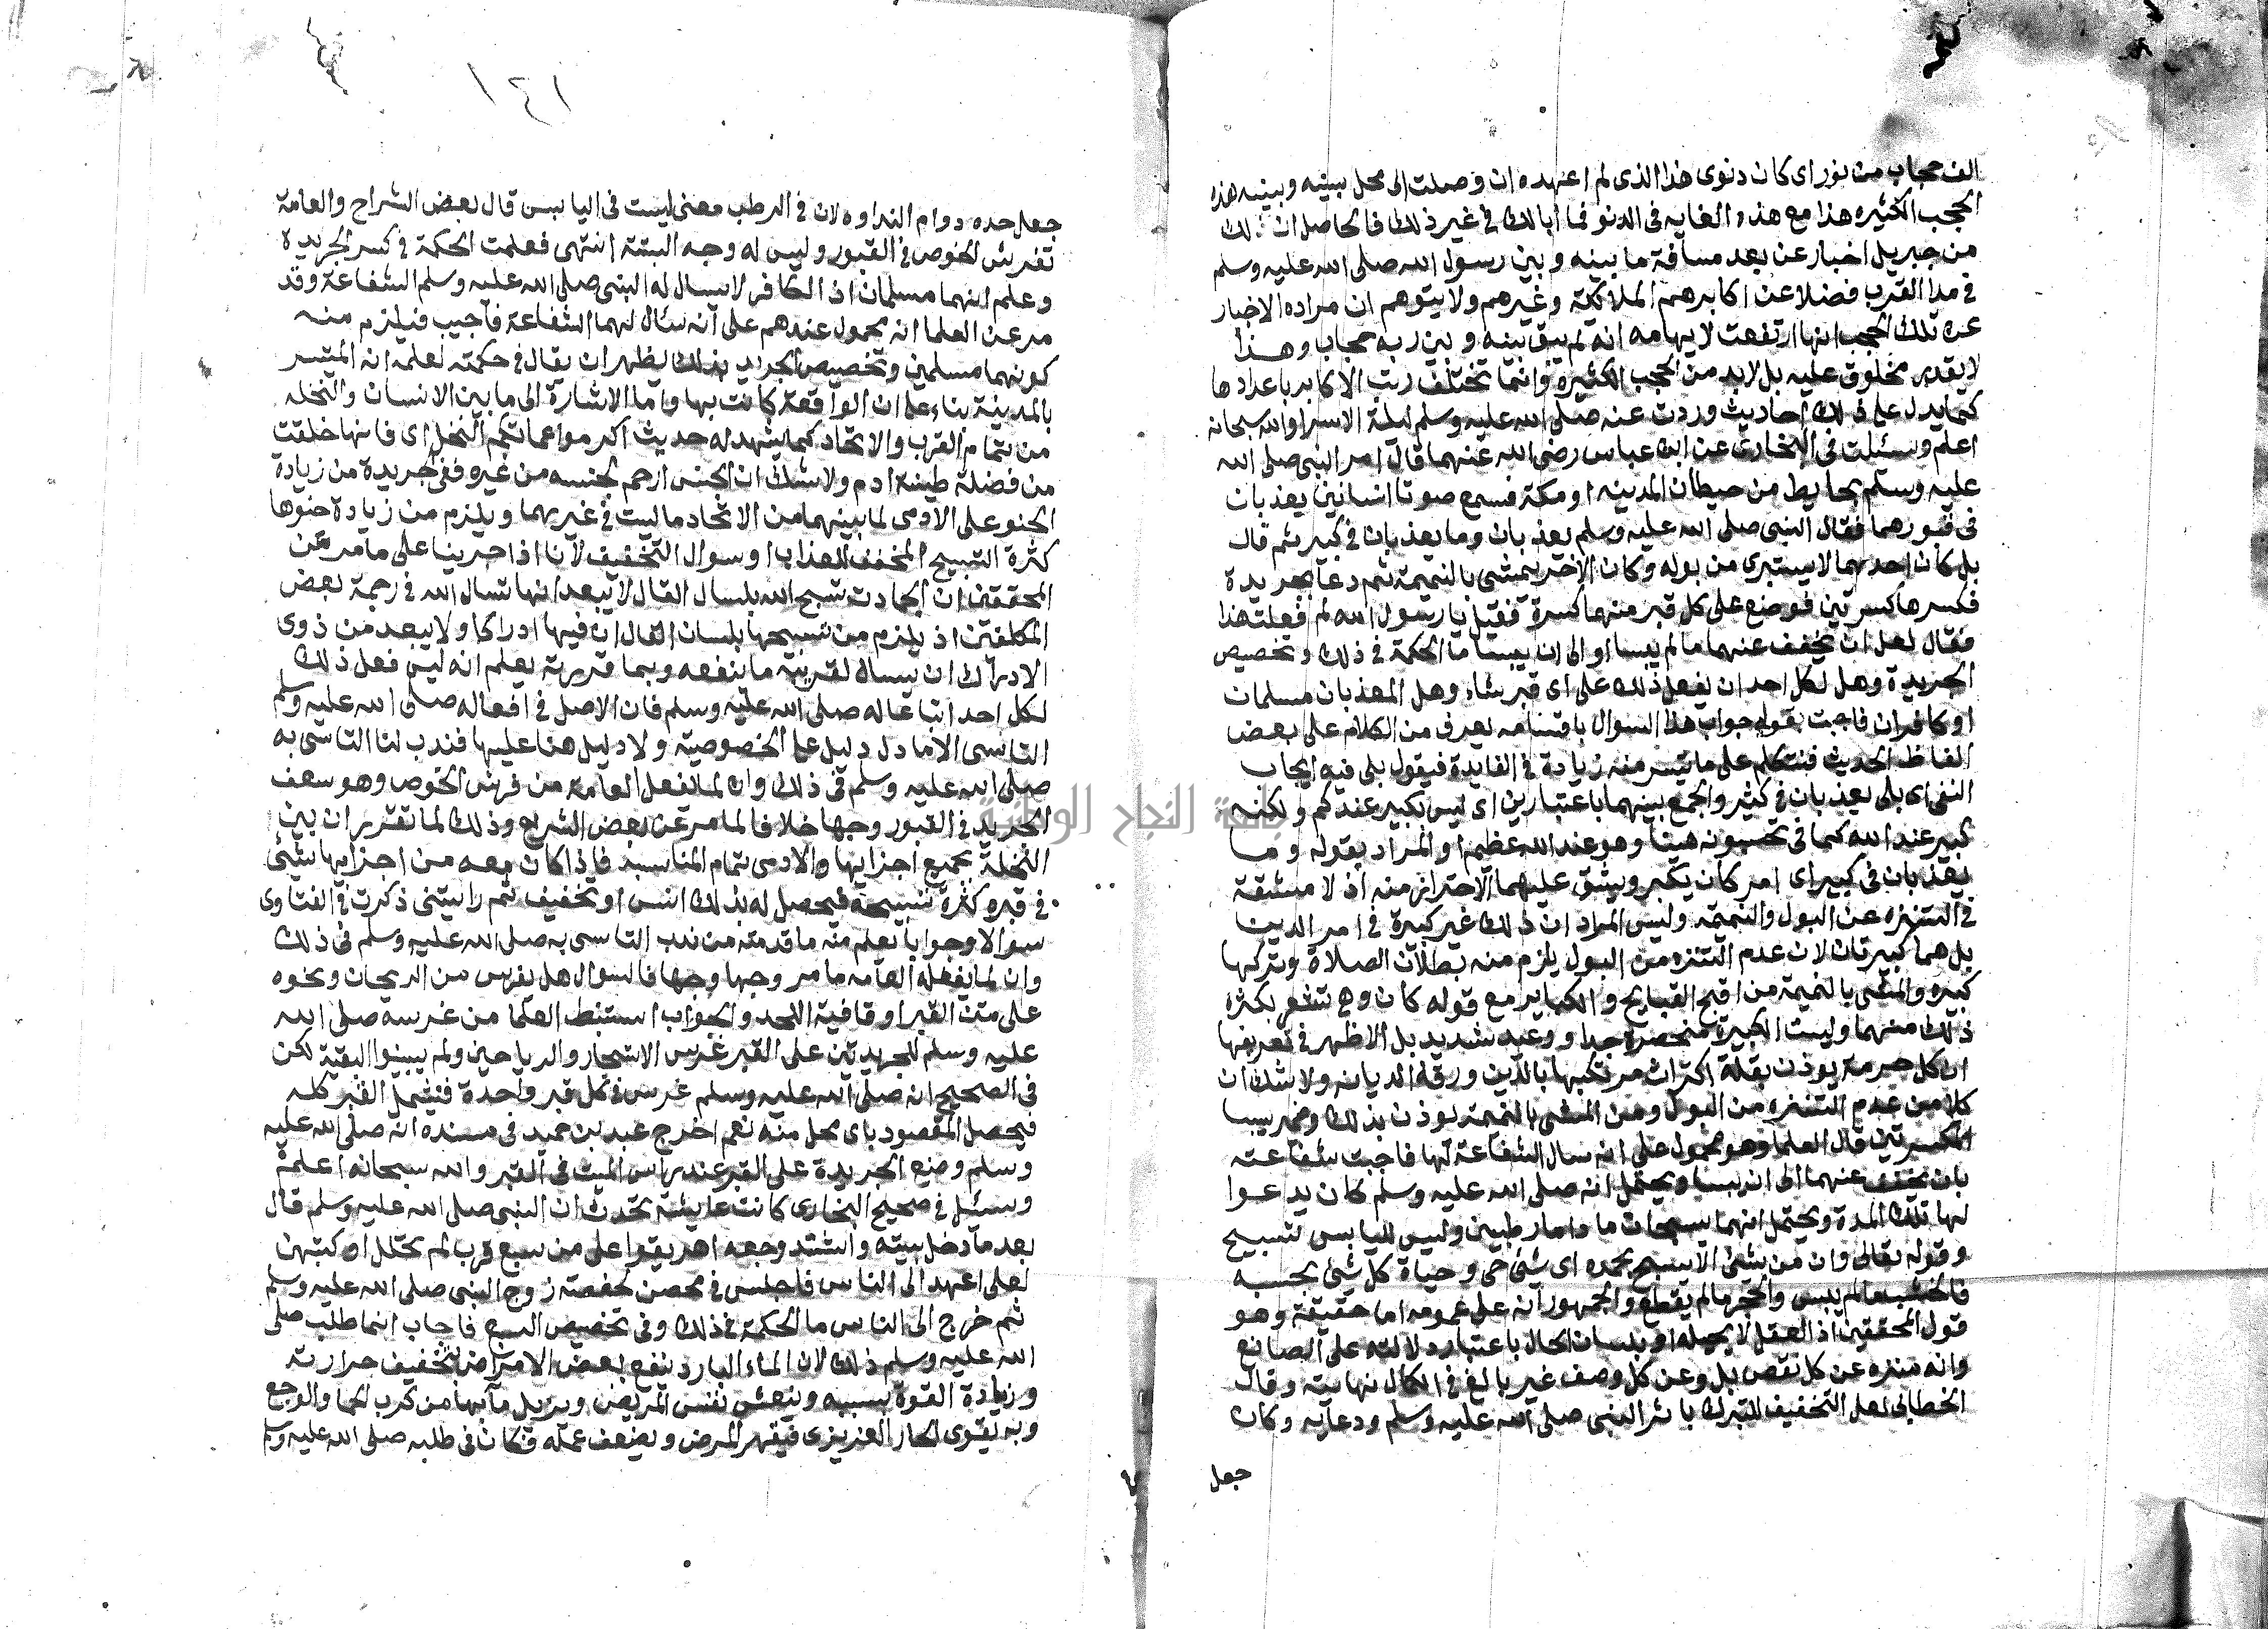 الف حجاب من نور اى كان دنوى هذا الذى لم اعهده ان وصلت الى محل بينه وبينه هذه
الحجب الكثيره هذا مع هذه الغايه فى الدنو فما بالك فى غير ذلك فالحاصل ان ذلك
من جبريل اخبار عن بعد مسافة ما بينه وبين رسول الله صلى الله عليه وسلم
فى هذا القرب فضلا عن اكابرهم الملائكة وغيرهم ولا يتوهم ان مراده الاخبار
عن تلك الحجب انها ارتفعت لايهامه انه لم يبق بينه وبين ربه حجاب وهذا
لا يقدر مخلوق عليه بل لا بد من الحجب الكثيرة وانما تختلف رتب الاكابر باعدادها
كما يدل على ذلك احاديث وردت عنه صلى الله عليه وسلم ليلة الاسرا والله سبحانه
اعلم وسئلت فى البخارى عن ابن عباس رضى الله عنهما قال مر النبى صلى الله
عليه وسلم بحايط من حيطان المدينه او مكة فسمع صوت انسانين يعذبان
فى قبورهما فقال النبى صلى الله عليه وسلم يعذبان وما يعذبان فى كبير ثم قال
بل كان احدهما لا يستبرى من بوله وكان الاخر يمشى بالنميمة ثم دعا بجريدة
فكسرها كسرتين فوضع على كل قبر منهما كسرة فقيل يا رسول الله لم فعلت هذا
فقال لعل ان يخفف عنهما ما لم ييبسا او الى ان ييبسا ما الحكمة فى ذلك وتخصيص
الجريدة وهل لكل احد ان يفعل ذلك على اى قبر شاء وهل المعذبان مسلمان
او كافران فاجبت بقوله جواب هذا السوال باقسامه يعرف من الكلام على بعض
الفاظ الحديث فنتكلم على ما تيسر منه زيادة فى الفايدة فيقول بلى فيه ايجاب
النفى اى بلى يعذبان فى كثير والجمع بينهما باعتبارين اى ليس بكبير عندكم ولكنه
كبير عند الله كما فى تحسبونه هينا وهو عند الله عظيم او المراد بقوله وما
يعذبان فى كبير اى امر كان يكبر ويشق عليهما الاحتراز منه اذ لا مشقة
فى التنزه عن البول والنميمة وليس المراد ان ذلك غير كبيرة فى امر الدين
بل هما كبيرتان لان عدم التنزه من البول يلزم منه بطلان الصلاة وتركها
كبيره والمشى بالنميمة من اقبح القبايح والكباير مع قوله كان وهى تشعر بكثرة
ذلك منهما وليست الكبيرة منحصرة حدا ووعيد شديد بل الاظهر فى تعريفها
ان كل جريمة يوذن بقلة اكتراث مرتكبها بالدين ورقة الديانه ولا شك ان
كلا من عدم التنزه من البول ومن المشى بالنميمة يوذن بذلك وضمير ييبسا
للكسرتين قال العلما وهو محمول على انه سال الشفاعة لها فاجبت شفاعته
بان يخفف عنهما الى ان ييبسا ويحتمل انه صلى الله عليه وسلم كان يدعوا
لهما تلك المدة ويحتمل انهما يسبحان ما داما رطبين وليس لليابس تسبيح
وقوله تعالى وان من شئ الا يسبح بحمده اى شئ حى وحياة كل شئ بحسبه
فالخشب ما لم ييبس والحجر ما لم يقطع والجمهور انه على عمومه اما حقيقة وهو
قول المحققين اذ العقل لا يحيله او بلسان الحال باعتبار دلالته على الصانع
وانه منزه عن كل نقص بل وعن كل وصف غير بالغ فى الكمال نهايته وقال
الخطابى لعل التخفيف للتبرك باثر النبى صلى الله عليه وسلم ودعايه وكان
جعل
١٤١
جعل حده دوام النداوه لان فى الرطب معنى ليست فى اليابس قال بعض الشراح والعامة
تفرش الخوص فى القبور وليس له وجه البتة انتهى فعلمت الحكمة فى كسر الجريدة
وعلم انهما مسلمان اذ الكافر لا يسال له النبى صلى الله عليه وسلم الشفاعة وقد
مر عن العلما انه محمول عندهم على انه سال لهما الشفاعة فاجيب فيلزم منه
كونهما مسلمين وتخصيص الجريد بذلك يظهر ان يقال فى حكمته لعلمه انه المتيسر
بالمدينة بناء على ان الواقعة كانت بها واما الاشارة الى ما بين الانسان والنخله
من تمام القرب والاتحاد كما يشهد له حديث اكرموا عماتكم النخل اى فانها خلقت
من فضلة طينة ادم ولا شك ان الجنس ارحم لجنسه من غيره ففى الجريدة من زيادة
الحنو على الادمى لما بينهما من الاتحاد ما ليست فى غيرهما ويلزم من زيادة حنوها
كثرة التسبيح المخفف للعذاب او سوال التخفيف لانا اذا جرينا على ما مر عن
المحققين ان الجمادات تسبح الله بلسان القال لا يبعد انها تسال الله فى رحمة بعض
المكلفين اذ يلزم من تسبيحها بلسان القال ان فيها ادراكا ولا يبعد من ذوى
الادراك ان يسال لقرينة ما ينفعه وبما قررته يعلم انه ليس فعل ذلك
لكل احد اتباعا له صلى الله عليه وسلم فان الاصل فى افعاله صلى الله عليه وسلم
التاسى الا ما دل دليل على الخصوصية ولا دليل هنا عليها فندب لنا التاسى به
صلى الله عليه وسلم فى ذلك وان لما تفعل العامة من فرش الخوص وهو سعف
الجريد فى القبور وجها خلافا لما مر عن بعض الشراح وذلك لما تقرر ان بين
النخلة بجميع اجزايها والادمى تمام المناسبة فاذا كان معه من اجزايها شئ
فى قبره كثرة تسبيحه فيحصل له بذلك انس او تخفيف ثم رايتنى ذكرت فى الفتاوى
سوالا وجوابا يعلم منه ما قدمته من ندب التاسى به صلى الله عليه وسلم فى ذلك
وان لما يفعله العامه ما مر وجها وجها فالسوال هل يغرس من الريحان ونحوه
على متن القبر او قافية اللحد والجواب استنبط العلما من غرسه صلى الله
عليه وسلم للجريدتين على القبر غرس الاشجار والرياحين ولم يبينوا البقية لكن
فى الصحيح انه صلى الله عليه وسلم غرس فى كل قبر واحدة فيشمل القبر كله
فيحصل المقصود باى محل منه نعم اخرج عبد بن حميد فى مسنده انه صلى الله عليه
وسلم وضع الجريدة على القبر عند راس الميت فى القبر والله سبحانه اعلم
وسئل فى صحيح البخارى كانت عايشة تحدث ان النبى صلى الله عليه وسلم قال
بعد ما دخل بيته واشتد وجعه اهريقوا على من سبع قرب لم تحلل اوكيتهن
لعلى اعهد الى الناس فاجلس فى مخضب لحفصة زوج النبى صلى الله عليه وسلم
ثم خرج الى الناس ما الحكمة فى ذلك وفى تخصيص السبع فاجاب انما طلب صلى
الله عليه وسلم ذلك لان الماء البارد ينفع بعض الامراض لتخفيف حرارته
وزيادة القوة بسببه وينعش نفس المريض ويزيل ما بها من كرب الحما والوجع
وبه يقوى الحار الغريزى فيقهر المرض ويضعف عمله فكان فى طلبه صلى الله عليه وسلم
جامعة النجاح الوطنية